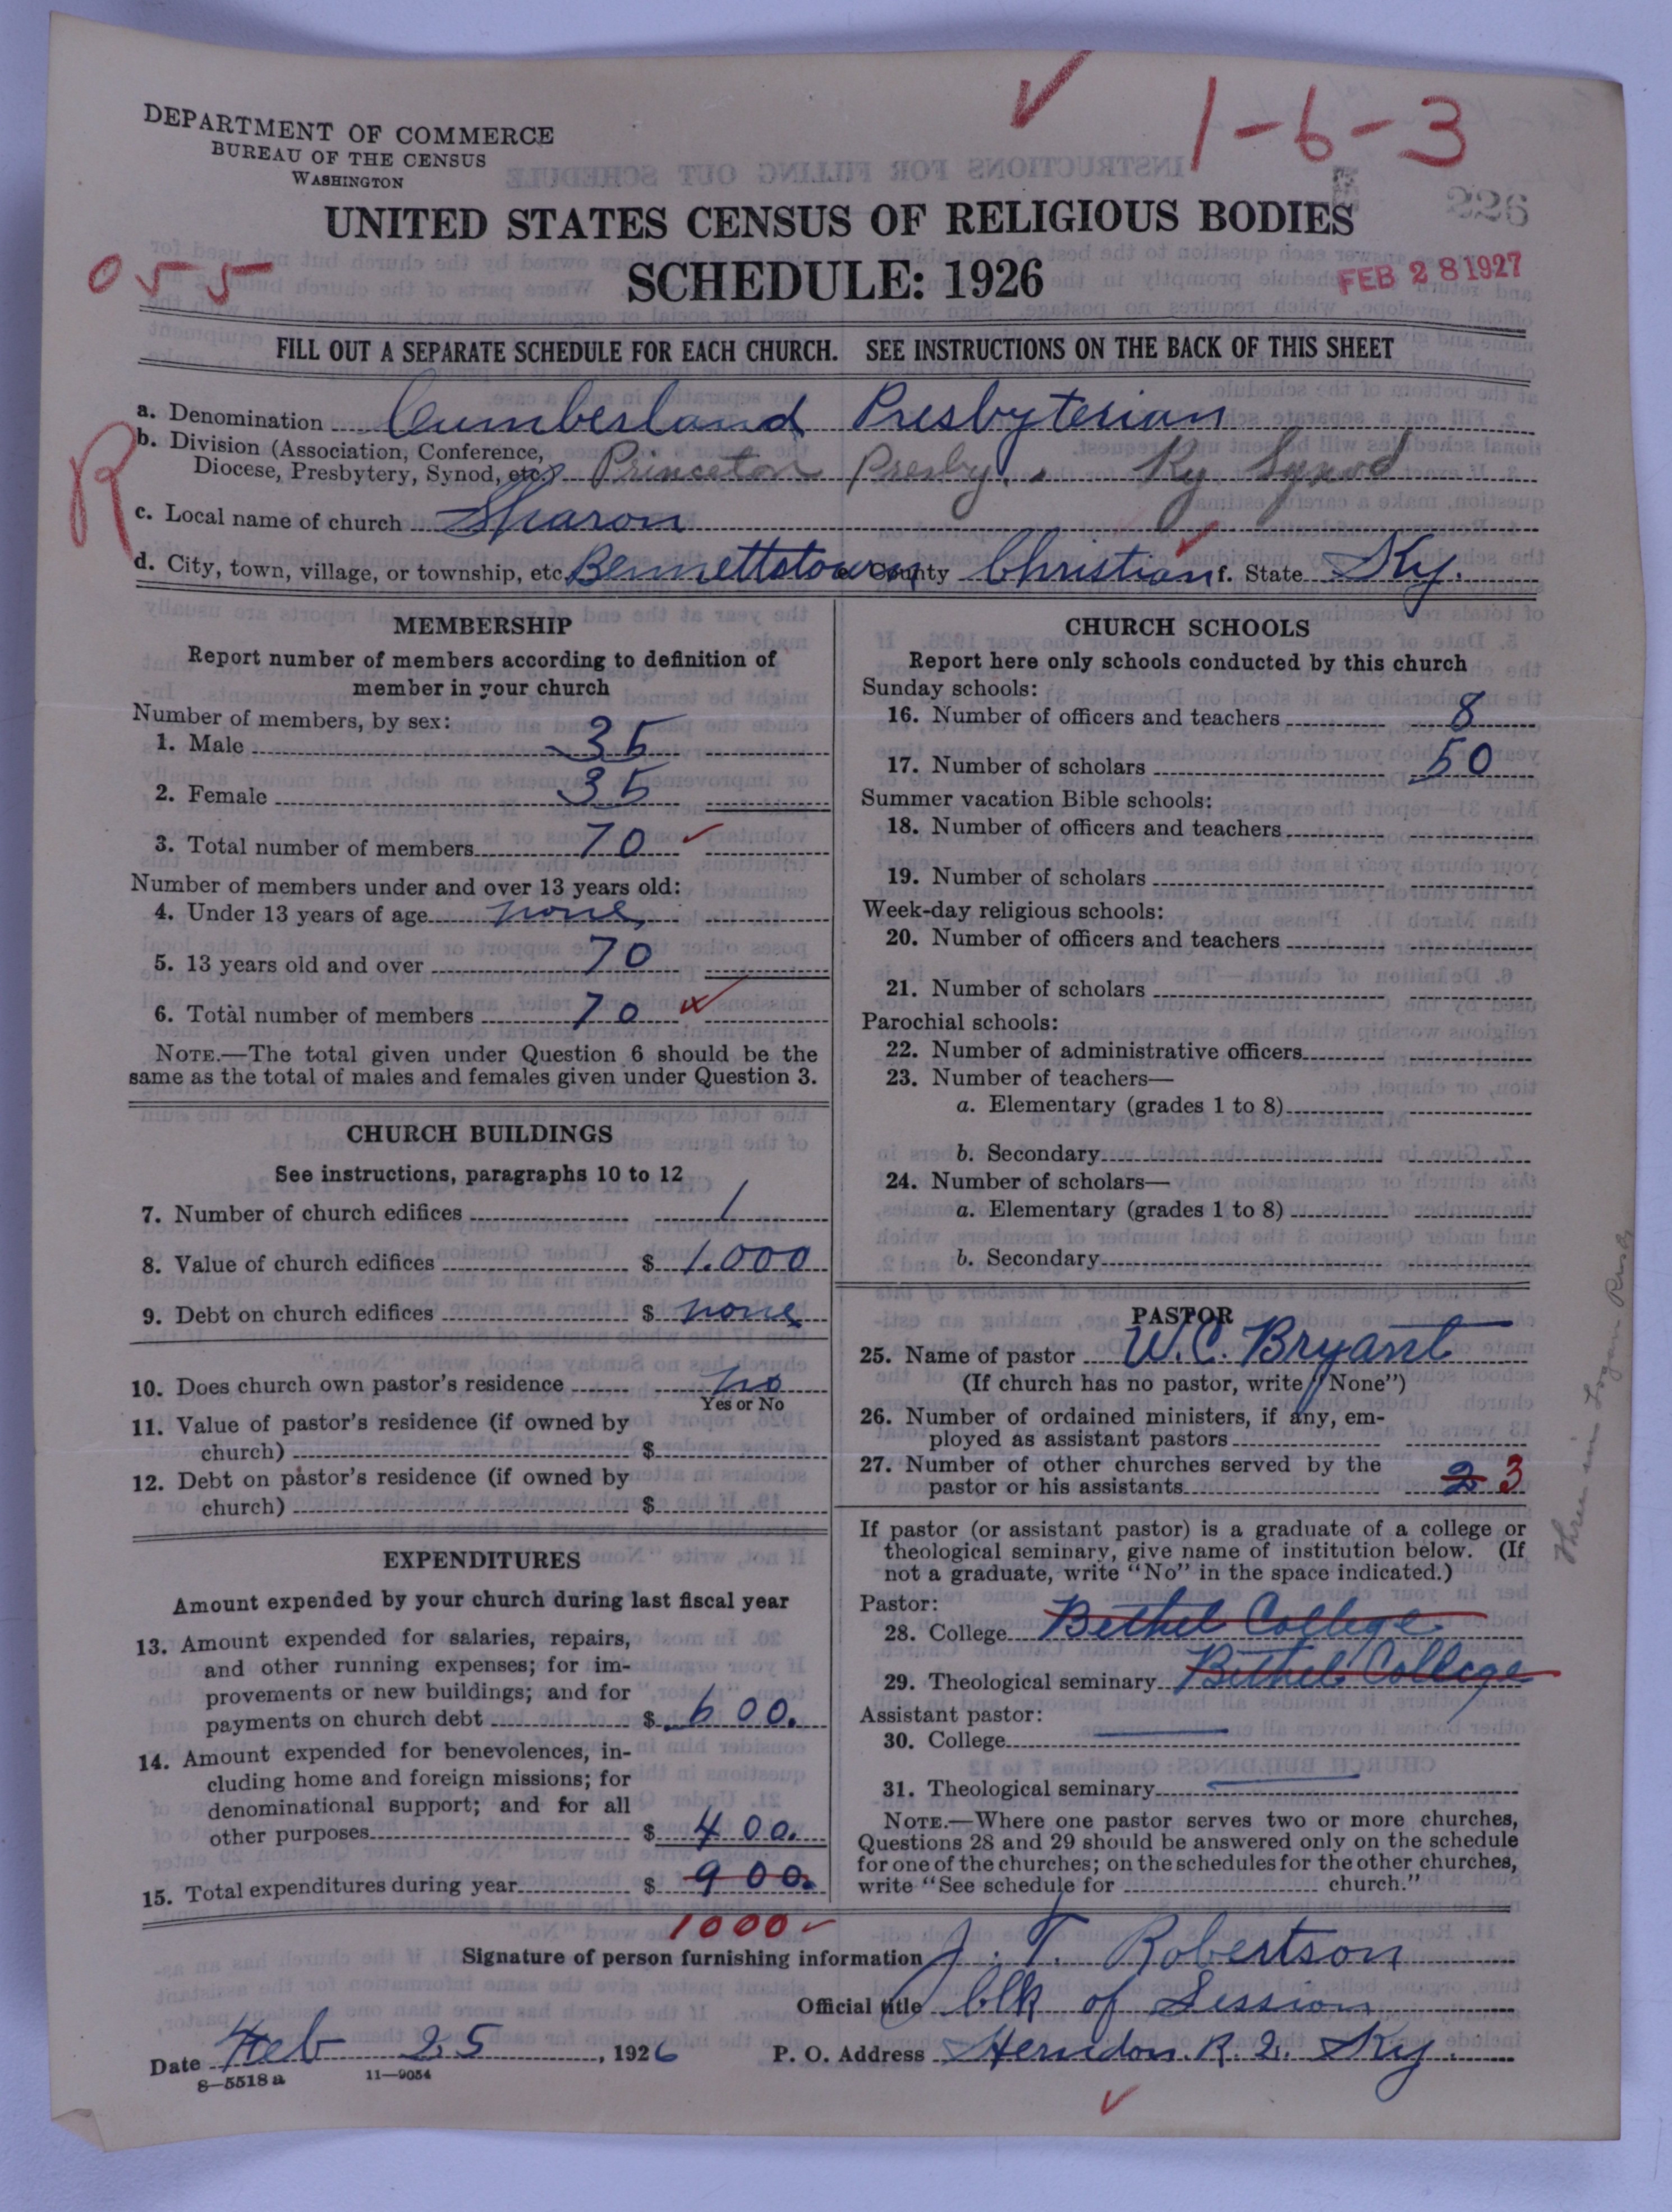 DEPARTMENT OF COMMERCE
BUREAU OF THE CENSUS
WASHINGTON
1-6-3
226
UNITED STATES CENSUS OF RELIGIOUS BODIES
SCHEDULE: 1926
055
FEB 28 1927
FILL OUT A SEPARATE SCHEDULE FOR EACH CHURCH. SEE INSTRUCTIONS ON THE BACK OF THIS SHEET
R
a. Denomination Cumberland Presbyterian
b. Division (Association, Conference,
Diocese, Presbytery, Synod, etc.) Princeton Presby. Ky Synod
c. Local name of church Sharon
d. City, town, village, or township, etc. Bennettstown e. County Christian f. State Ky.
MEMBERSHIP
Report number of members according to definition of
member in your church
Number of members, by sex:
1. Male 35
2. Female 35
3. Total number of members 70
Number of members under and over 13 years old:
4. Under 13 years of age none
5. 13 years old and over 70
6. Total number of members 70
NOTE.—The total given under Question 6 should be the
same as the total of males and females given under Question 3.
CHURCH BUILDINGS
See instructions, paragraphs 10 to 12
7. Number of church edifices 1
8. Value of church edifices $ 1.000
9. Debt on church edifices $ none
10. Does church own pastor's residence no
Yes or No
11. Value of pastor's residence (if owned by
church) $
12. Debt on pastor's residence (if owned by
church) $
EXPENDITURES
Amount expended by your church during last fiscal year
13. Amount expended for salaries, repairs,
and other running expenses; for im-
provements or new buildings; and for
payments on church debt $ 600.
14. Amount expended for benevolences, in-
cluding home and foreign missions; for
denominational support; and for all
other purposes $ 400.
15. Total expenditures during year $ 900.
1000
CHURCH SCHOOLS
Report here only schools conducted by this church
Sunday schools:
16. Number of officers and teachers 8
17. Number of scholars 50
Summer vacation Bible schools:
18. Number of officers and teachers
19. Number of scholars
Week-day religious schools:
20. Number of officers and teachers
21. Number of scholars
Parochial schools:
22. Number of administrative officers
23. Number of teachers—
a. Elementary (grades 1 to 8)
b. Secondary
24. Number of scholars—
a. Elementary (grades 1 to 8)
b. Secondary
PASTOR
25. Name of pastor W.C. Bryant
(If church has no pastor, write "None")
26. Number of ordained ministers, if any, em-
ployed as assistant pastors
27. Number of other churches served by the
pastor or his assistants 2 3
If pastor (or assistant pastor) is a graduate of a college or
theological seminary, give name of institution below. (If
not a graduate, write "No" in the space indicated.)
Pastor:
28. College Bethel College
29. Theological seminary Bethel College
Assistant pastor:
30. College
31. Theological seminary
NOTE.—Where one pastor serves two or more churches,
Questions 28 and 29 should be answered only on the schedule
for one of the churches; on the schedules for the other churches,
write "See schedule for church."
Three in Logan Presby
Signature of person furnishing information J. T. Robertson
Official title Clk of Session
Date Feb 25, 1926 P. O. Address Herndon. R. 2. Ky.
8—5518 a 11—9054